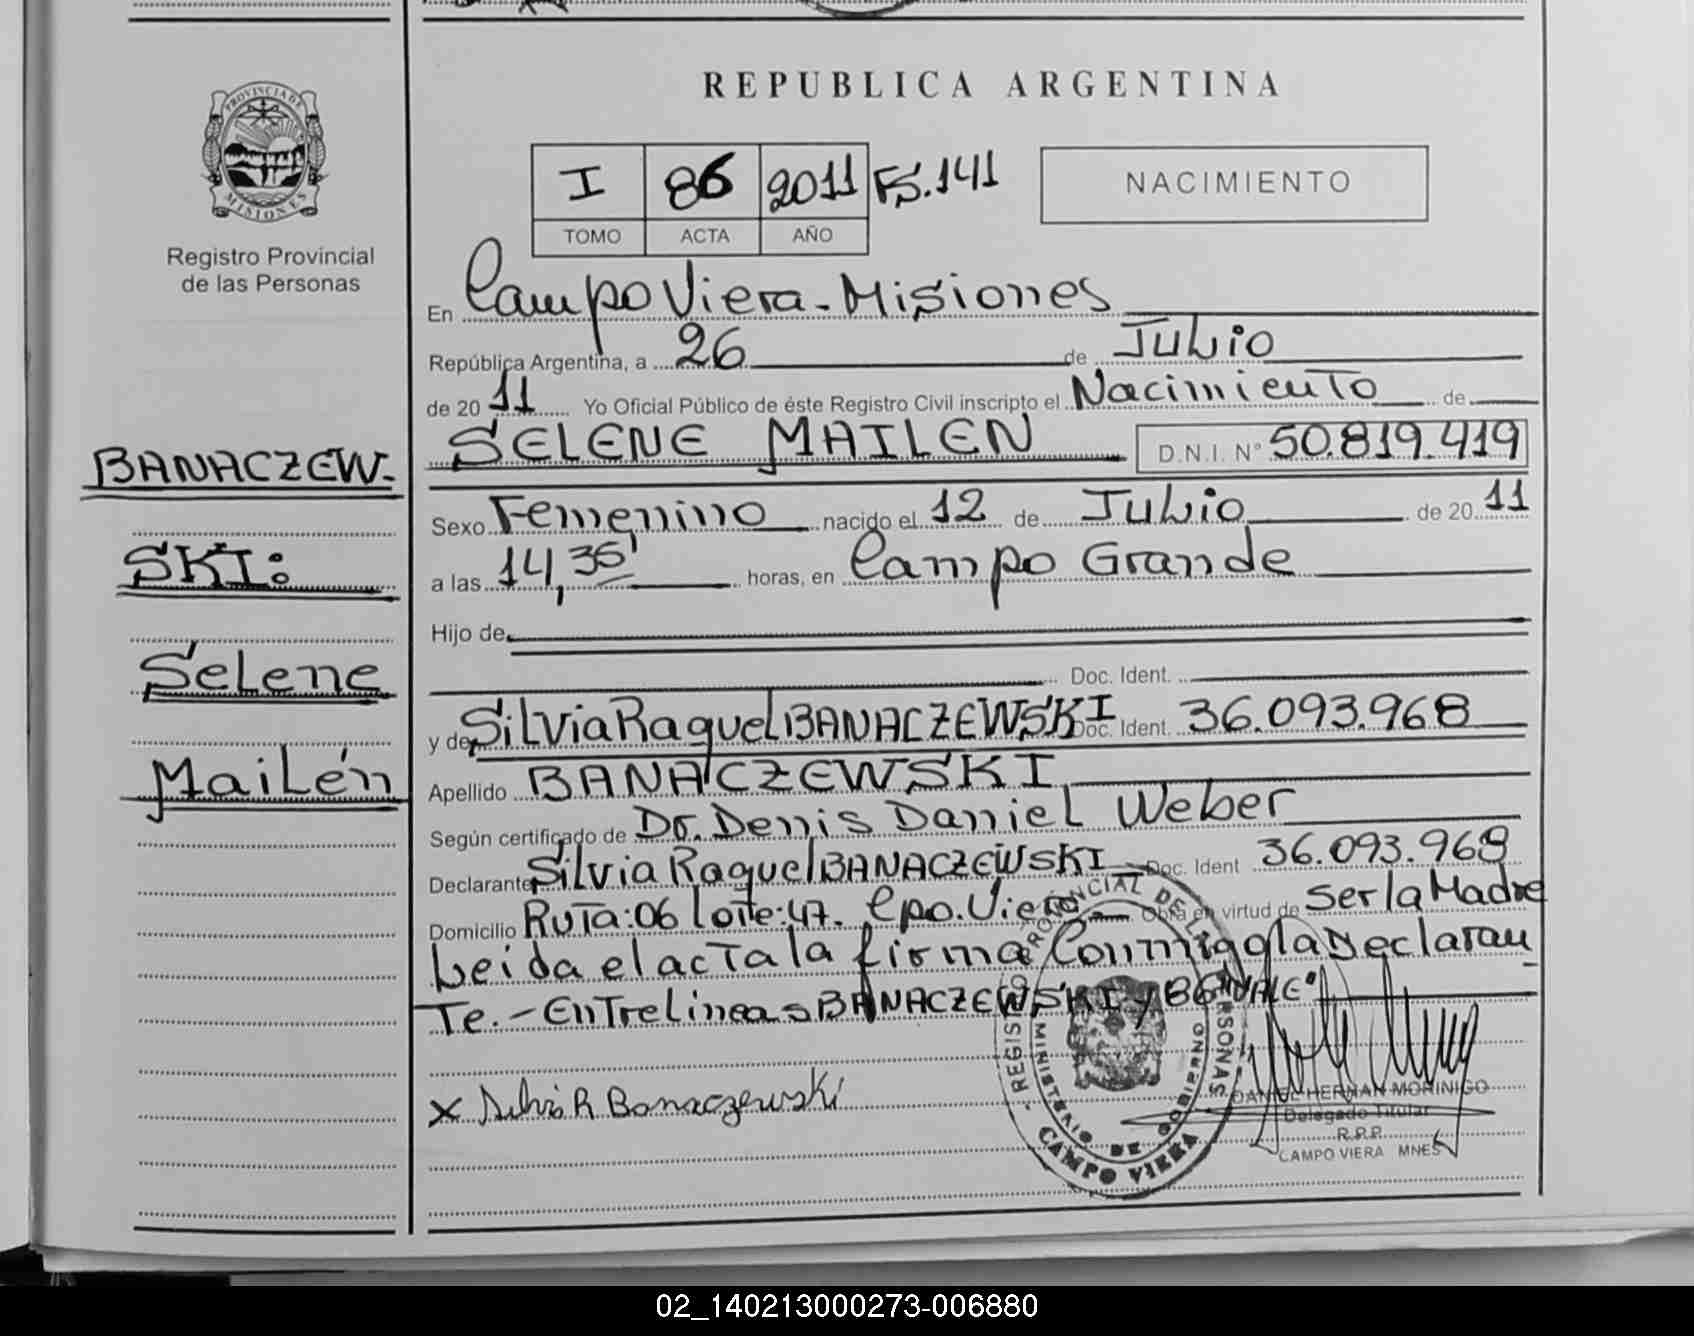 PROVINCIA DE
MISIONES
Registro Provincial
de las Personas
BANACZEW-
SKI:
Selene
Mailén
REPUBLICA ARGENTINA
I 86 2011 FS.141
TOMO ACTA AÑO
NACIMIENTO
En Campo Viera - Misiones
República Argentina, a 26 de Julio
de 2011 Yo Oficial Público de éste Registro Civil inscripto el Nacimiento de
SELENE MAILEN D.N.I. Nº 50.819.419
Sexo Femenino nacido el 12 de Julio de 2011
a las 14,35' horas, en Campo Grande
Hijo de
Doc. Ident.
y de Silvia Raquel BANACZEWSKI Doc. Ident. 36.093.968
Apellido BANACZEWSKI
Según certificado de Dr. Denis Daniel Weber
Declarante Silvia Raquel BANACZEWSKI Doc. Ident 36.093.968
Domicilio Ruta:06 lote:47. Cpo. Viera Obra en virtud de ser la Madre
Leida el acta la firma Conmigo la Declaran
Te.- EnTrelineas BANACZEWSKI y 86 "VALE"
x Silvia R Banaczewski
REGISTRO PROVINCIAL DE LAS PERSONAS
MINISTERIO DE GOBIERNO
CAMPO VIERA
DANIEL HERNAN MORINIGO
Delegado Titular
R.P.P.
CAMPO VIERA MNES
02_140213000273-006880